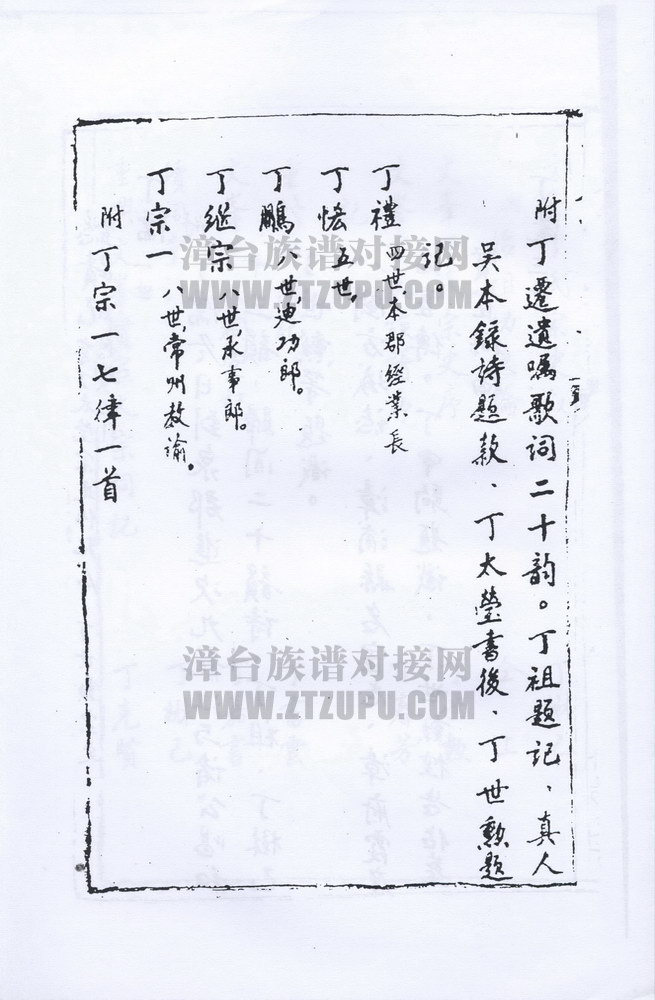 附丁遷遺嘱歌词二十韵。丁祖題记、真人
吴本録詩題款、丁太瑩書後、丁世勲題
记。
丁禮 四世本郡經業長
丁惦 五世。
丁鵬 八世,迪功郎。
丁继宗 八世,承事郎。
丁宗一 八世,常州教諭。
附丁宗一七律一首
漳台族谱对接网
WWW.ZTZUPU.COM
漳台族谱对接网
WWW.ZTZUPU.COM